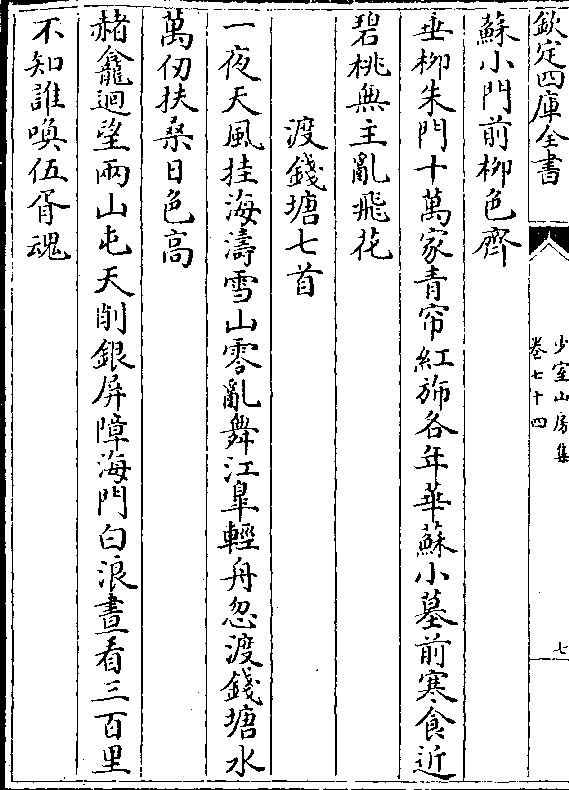 欽定四庫全書
少室山房集
卷七十四
七
蘇小門前柳色齊
垂柳朱門十萬家青帘紅斾各年華蘇小墓前寒食近
碧桃無主亂飛花
渡錢塘七首
一夜天風挂海濤雪山零亂舞江臯輕舟忽渡錢塘水
萬仞扶桑日色高
赭龕迴望兩山屯天削銀屏障海門白浪晝看三百里
不知誰喚伍胥魂